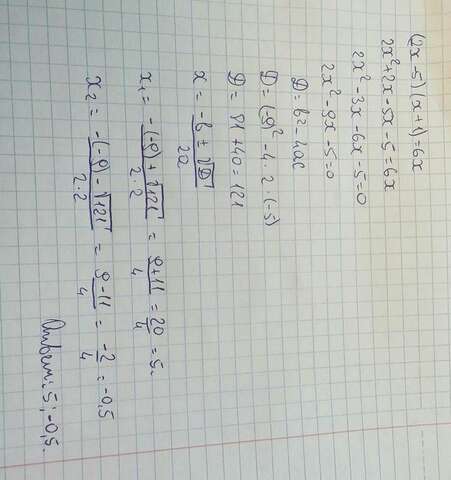 (2x-5)(x+1)=6x
2x²+2x-5x-5=6x
2x²-3x-6x-5=0
2x²-9x-5=0
D=b²-4ac
D=(-9)²-4·2·(-5)
D=81+40=121
x=\frac{-b±√D}{2a}
x₁=\frac{-(-9)+√121}{2·2}=\frac{9+11}{4}=\frac{20}{4}=5.
x₂=\frac{-(-9)-√121}{2·2}=\frac{9-11}{4}=\frac{-2}{4}=-0,5
Ответ: 5; -0,5.